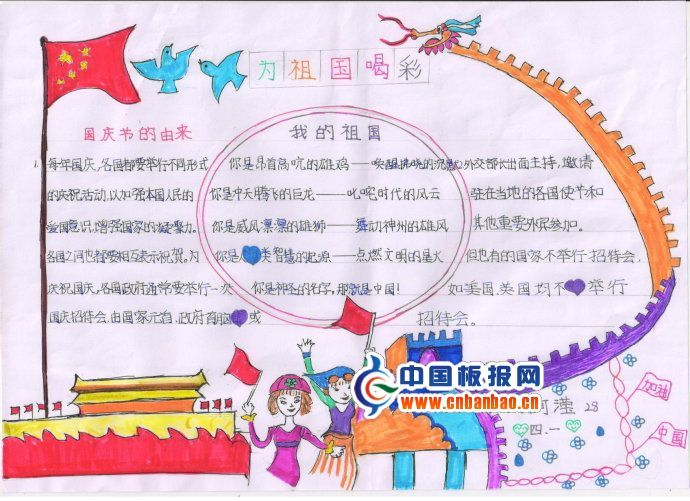 为祖国喝彩
国庆节的由来
1. 每年国庆,各国都要举行不同形式
的庆祝活动,以加强本国人民的
爱国意识,增强国家的凝聚力。
各国之间也都要相互表示祝贺。为
庆祝国庆,各国政府通常要举行一次
国庆招待会,由国家元首、政府首脑或
我的祖国
你是昂首高吭的雄鸡——唤醒拂晓的沉默
你是中天腾飞的巨龙——叱咤时代的风云
你是威风凛凛的雄狮——舞动神州的雄风
你是人类智慧的起源——点燃文明的星火
你是神圣的名字,那就是中国!
外交部长出面主持,邀请
驻在当地的各国使节和
其他重要外宾参加。
但也有的国家不举行招待会,
如美国、英国均不举行
招待会。
中国板报网
www.cnbanbao.cn
滢 28
四.一
加油
中国